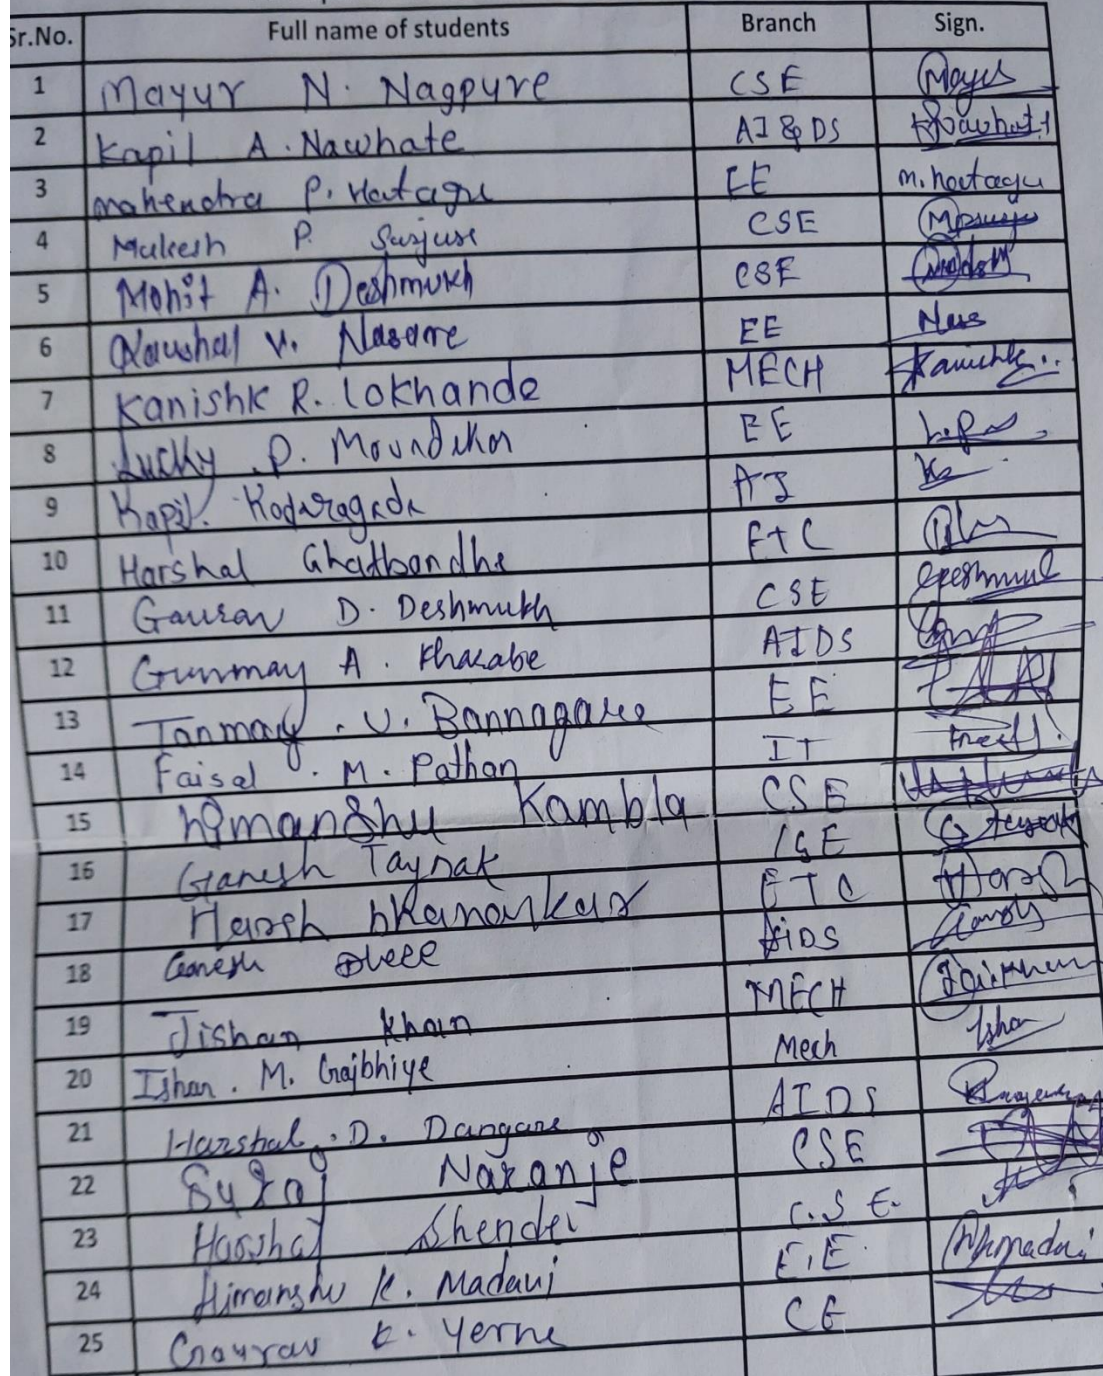 Sr.No. Full name of students Branch Sign.
1 Mayur N. Nagpure CSE Mayur
2 Kapil A. Nawhate AI & DS
3 Mahendra P. Hatagu EE m. hatagu
4 Mukesh P. Surjuse CSE
5 Mohit A. Deshmukh CSE
6 Kaushal V. Nasare EE Nas
7 Kanishk R. Lokhande MECH Kanishk
8 Lucky P. Moundekar EE
9 Kapil AI
10 Harshal Ghatbandhe ETC
11 Gaurav D. Deshmukh CSE
12 Gunmay A. Kharabe AIDS
13 Tanmay . U. Bannagare EE
14 Faisal . M. Pathan IT
15 himanshu Kambla CSE
16 Ganesh Taynak CSE
17 Harsh ETC Harsh
18 Ganesh AIDS
19 Jishan Khan MECH
20 Ishan . M. Gajbhiye Mech Ishan
21 Harshal . D. Dangare AIDS
22 Suraj Naranje CSE
23 Harshal Shende C.S.E.
24 Himanshu K. Madavi E.E.
25 Gourav K. Yerne CE